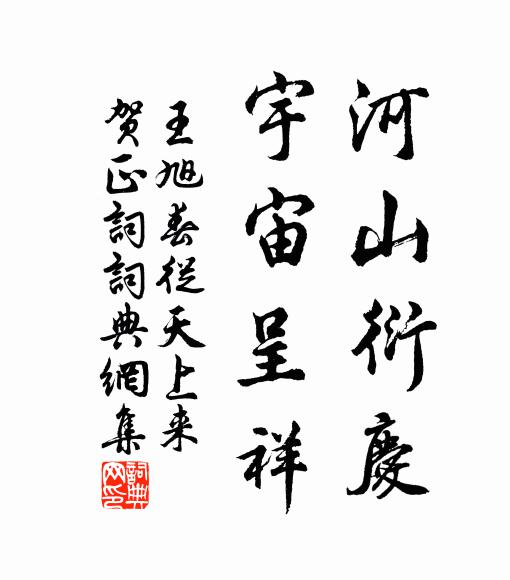 河山衍慶
宇宙呈祥
王旭春從天上来
贺正詞詞典網集
詞典網印